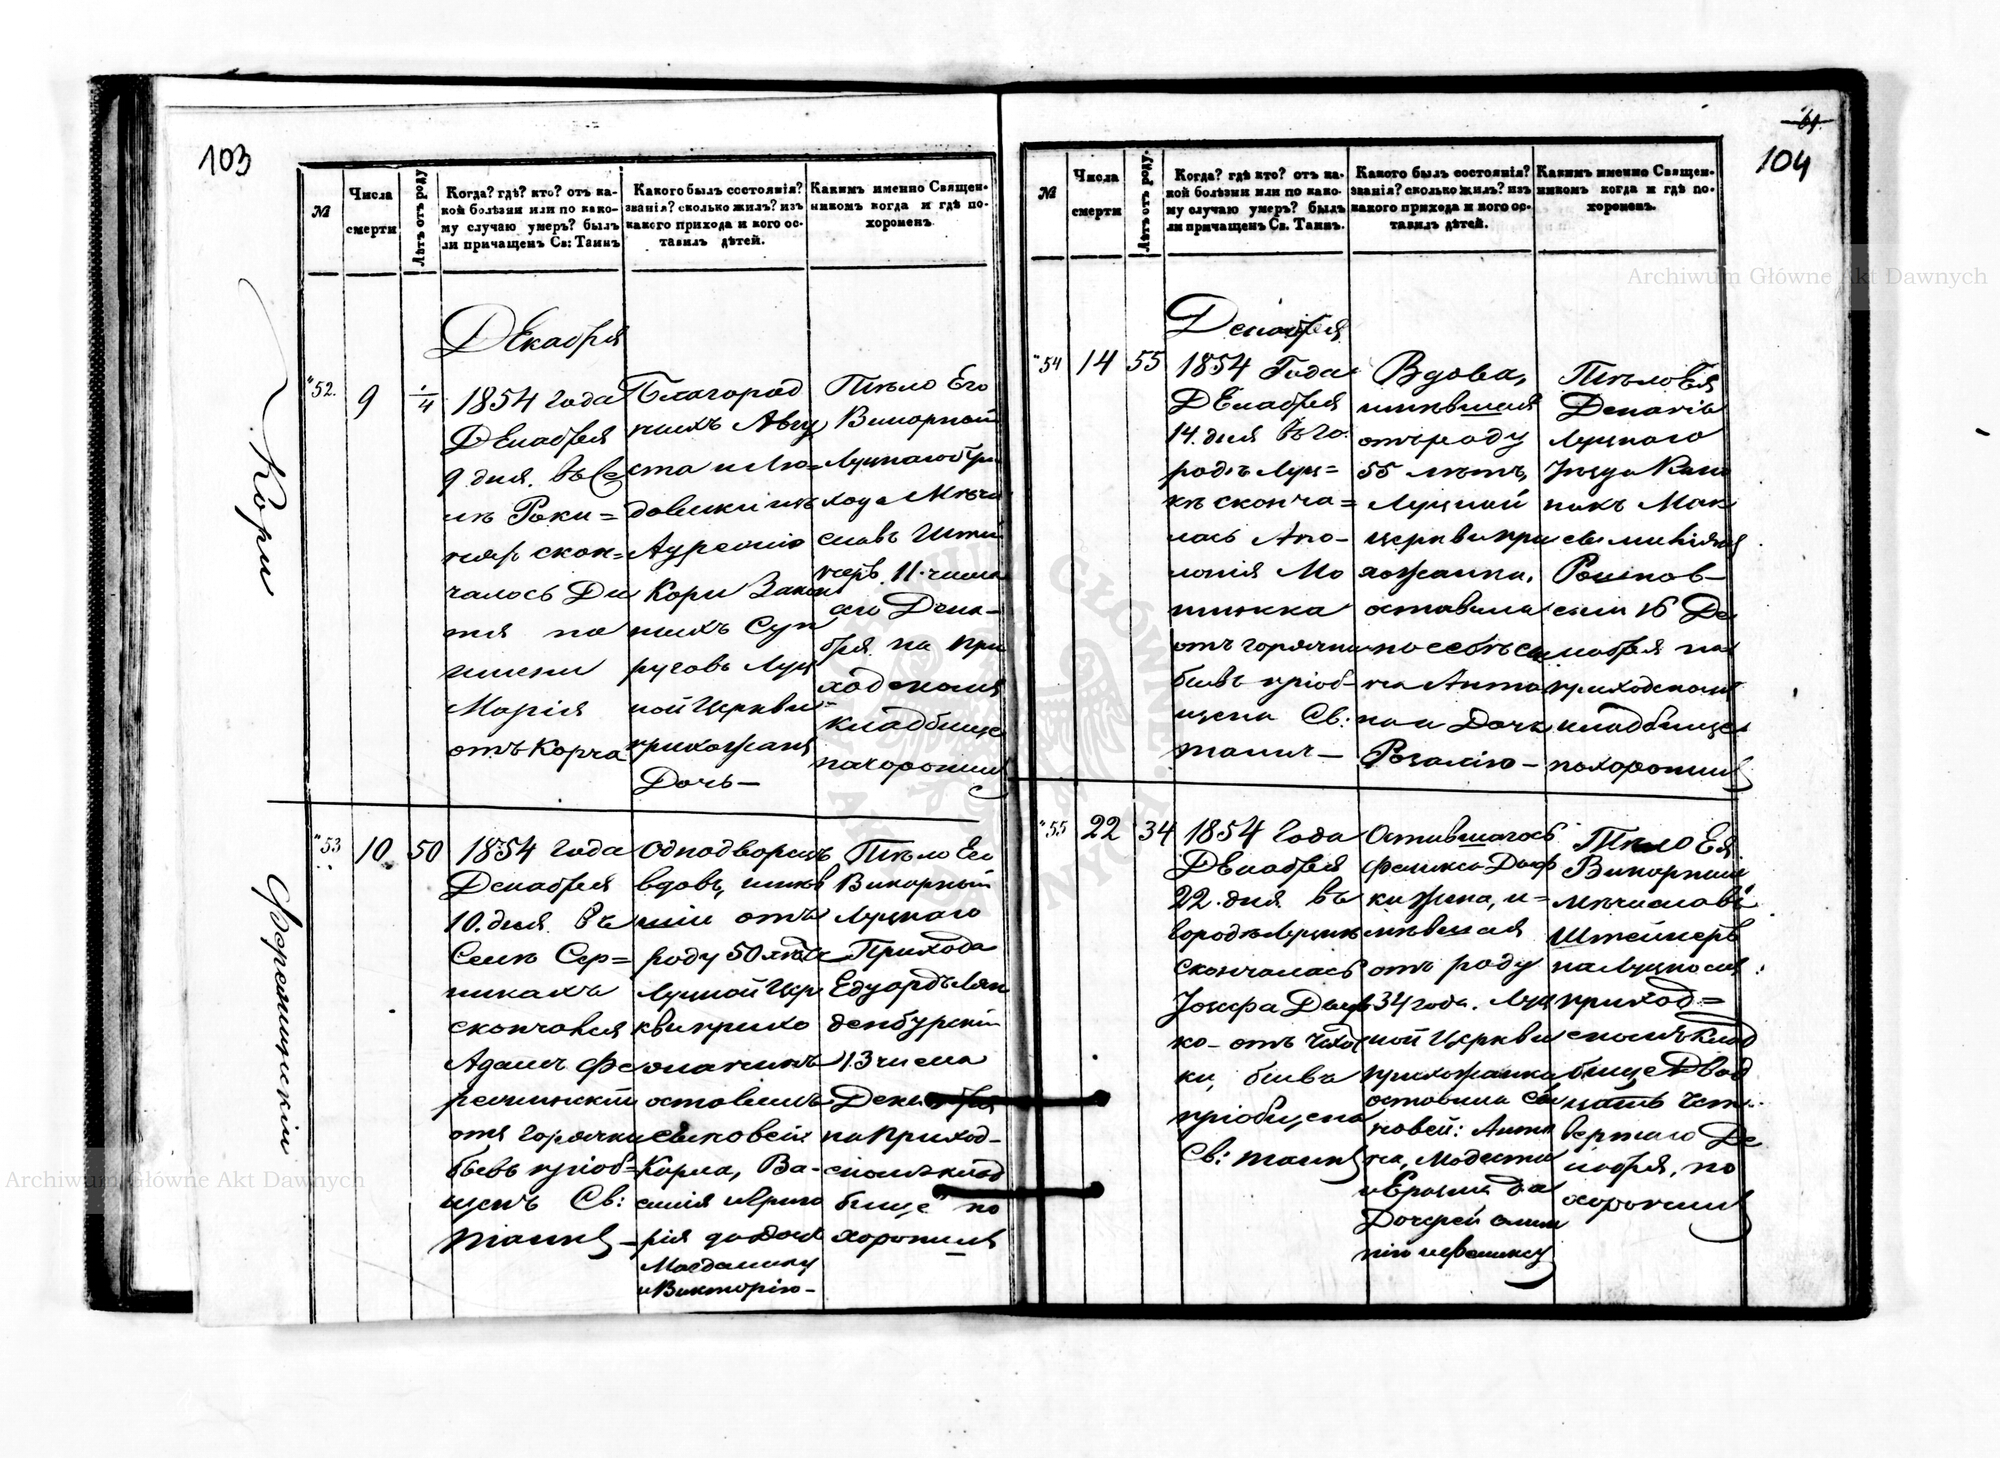 103
№
Числа
смерти
Лѣтъ отъ роду
Когда? гдѣ? кто? отъ ка-
кой болѣзни или по како-
му случаю умеръ? былъ
ли причащенъ Св: Таинъ
Какого былъ состоянія?
званія? сколько жилъ? изъ
какого прихода и кого ос-
тавилъ дѣтей.
Какимъ именно Священ-
никомъ когда и гдѣ по-
хороненъ.
Кори
Декабря
52.
9
1/4
1854 года
Декабря
9 дня. въ Се
лѣ Роки=
скон=
чалось Ди
тя по
имени
Марія
отъ Корча
Благород
ныхъ Авгу
ста и Лю=
довики изъ
Кори Закон
ныхъ Суп
руговъ Луц
кой Церкви
прихожанъ
Дочь—
Тѣло Его
Викарный
Луцкаго При
хода Мѣчи
славъ Штей
неръ 11. числа
Дека-
бря на при
ходскомъ
кладбище
похоронилъ
Ференцинскій
53
10
50
1854 года
Декабря
10. дня. въ
Селѣ Сер=
никахъ
скончался
Адамъ Фе
ренцинскій
отъ горячки
бывъ пріоб=
щенъ Св:
таинъ—
Однодворецъ
вдовъ, имѣв
шій отъ
роду 50 лѣтъ
Луцкой Цер
кви прихо
жанинъ
оставилъ
сыновей:
Карла, Ва-
силія и Григо
рія да дочь
Магдалину
и Викторію—
Тѣло Его
Викарный
Луцкаго
Прихода
Едуардъ Лян
денбурскій
13 числа
Декабря
на Приход-
скомъ клад
бище по
хоронилъ
61.
104
№
Числа
смерти
Лѣтъ отъ роду.
Когда? гдѣ? кто? отъ ка-
кой болѣзни или по како-
му случаю умеръ? былъ
ли причащенъ Св. Таинъ.
Какого былъ состоянія?
званія? сколько жилъ? изъ
какого прихода и кого ос-
тавилъ дѣтей.
Какимъ именно Священ-
никомъ когда и гдѣ по-
хороненъ.
Декабря
54
14
55
1854 Года
Декабря
14. дня въ го.
родѣ Луц=
кѣ сконча=
лась Апо-
лонія Мо
отъ горячки
бывъ пріоб-
щена Св:
таинъ—
Вдова,
имѣвшая
отъ роду
55 лѣтъ,
Луцкой
церкви при
хожанка,
оставила
по себѣ сы
на Анто
на и Дочь
Розалію—
Тѣло Ея
Деканъ
Луцкаго
Уѣзда Кано
никъ Мак
симиліянъ
16 Де
кабря на
приходскомъ
кладбище
похоронилъ
55
22
34
1854 года
Декабря
22. дня въ
городѣ Луцкѣ
скончалась
Іозефа
ко- отъ Чахот
ки, бывъ
пріобщена
Св: таинъ
Оставшагось
Феликса
ки жена, и-
мѣвшая
отъ роду
34 года. Луц
кой Церкви
прихожанка
оставила сы
новей: Анто
на, Модеста
и Еразма да
Дочерей
Тѣло Ея
Викарный
Мѣчиславъ
Штейнеръ
на Луцкомъ
приход=
скомъ клад
бище Двад
цать чет
вертаго Де
кабря, по
хоронилъ
Archiwum Główne Akt Dawnych
Archiwum Główne Akt Dawnych